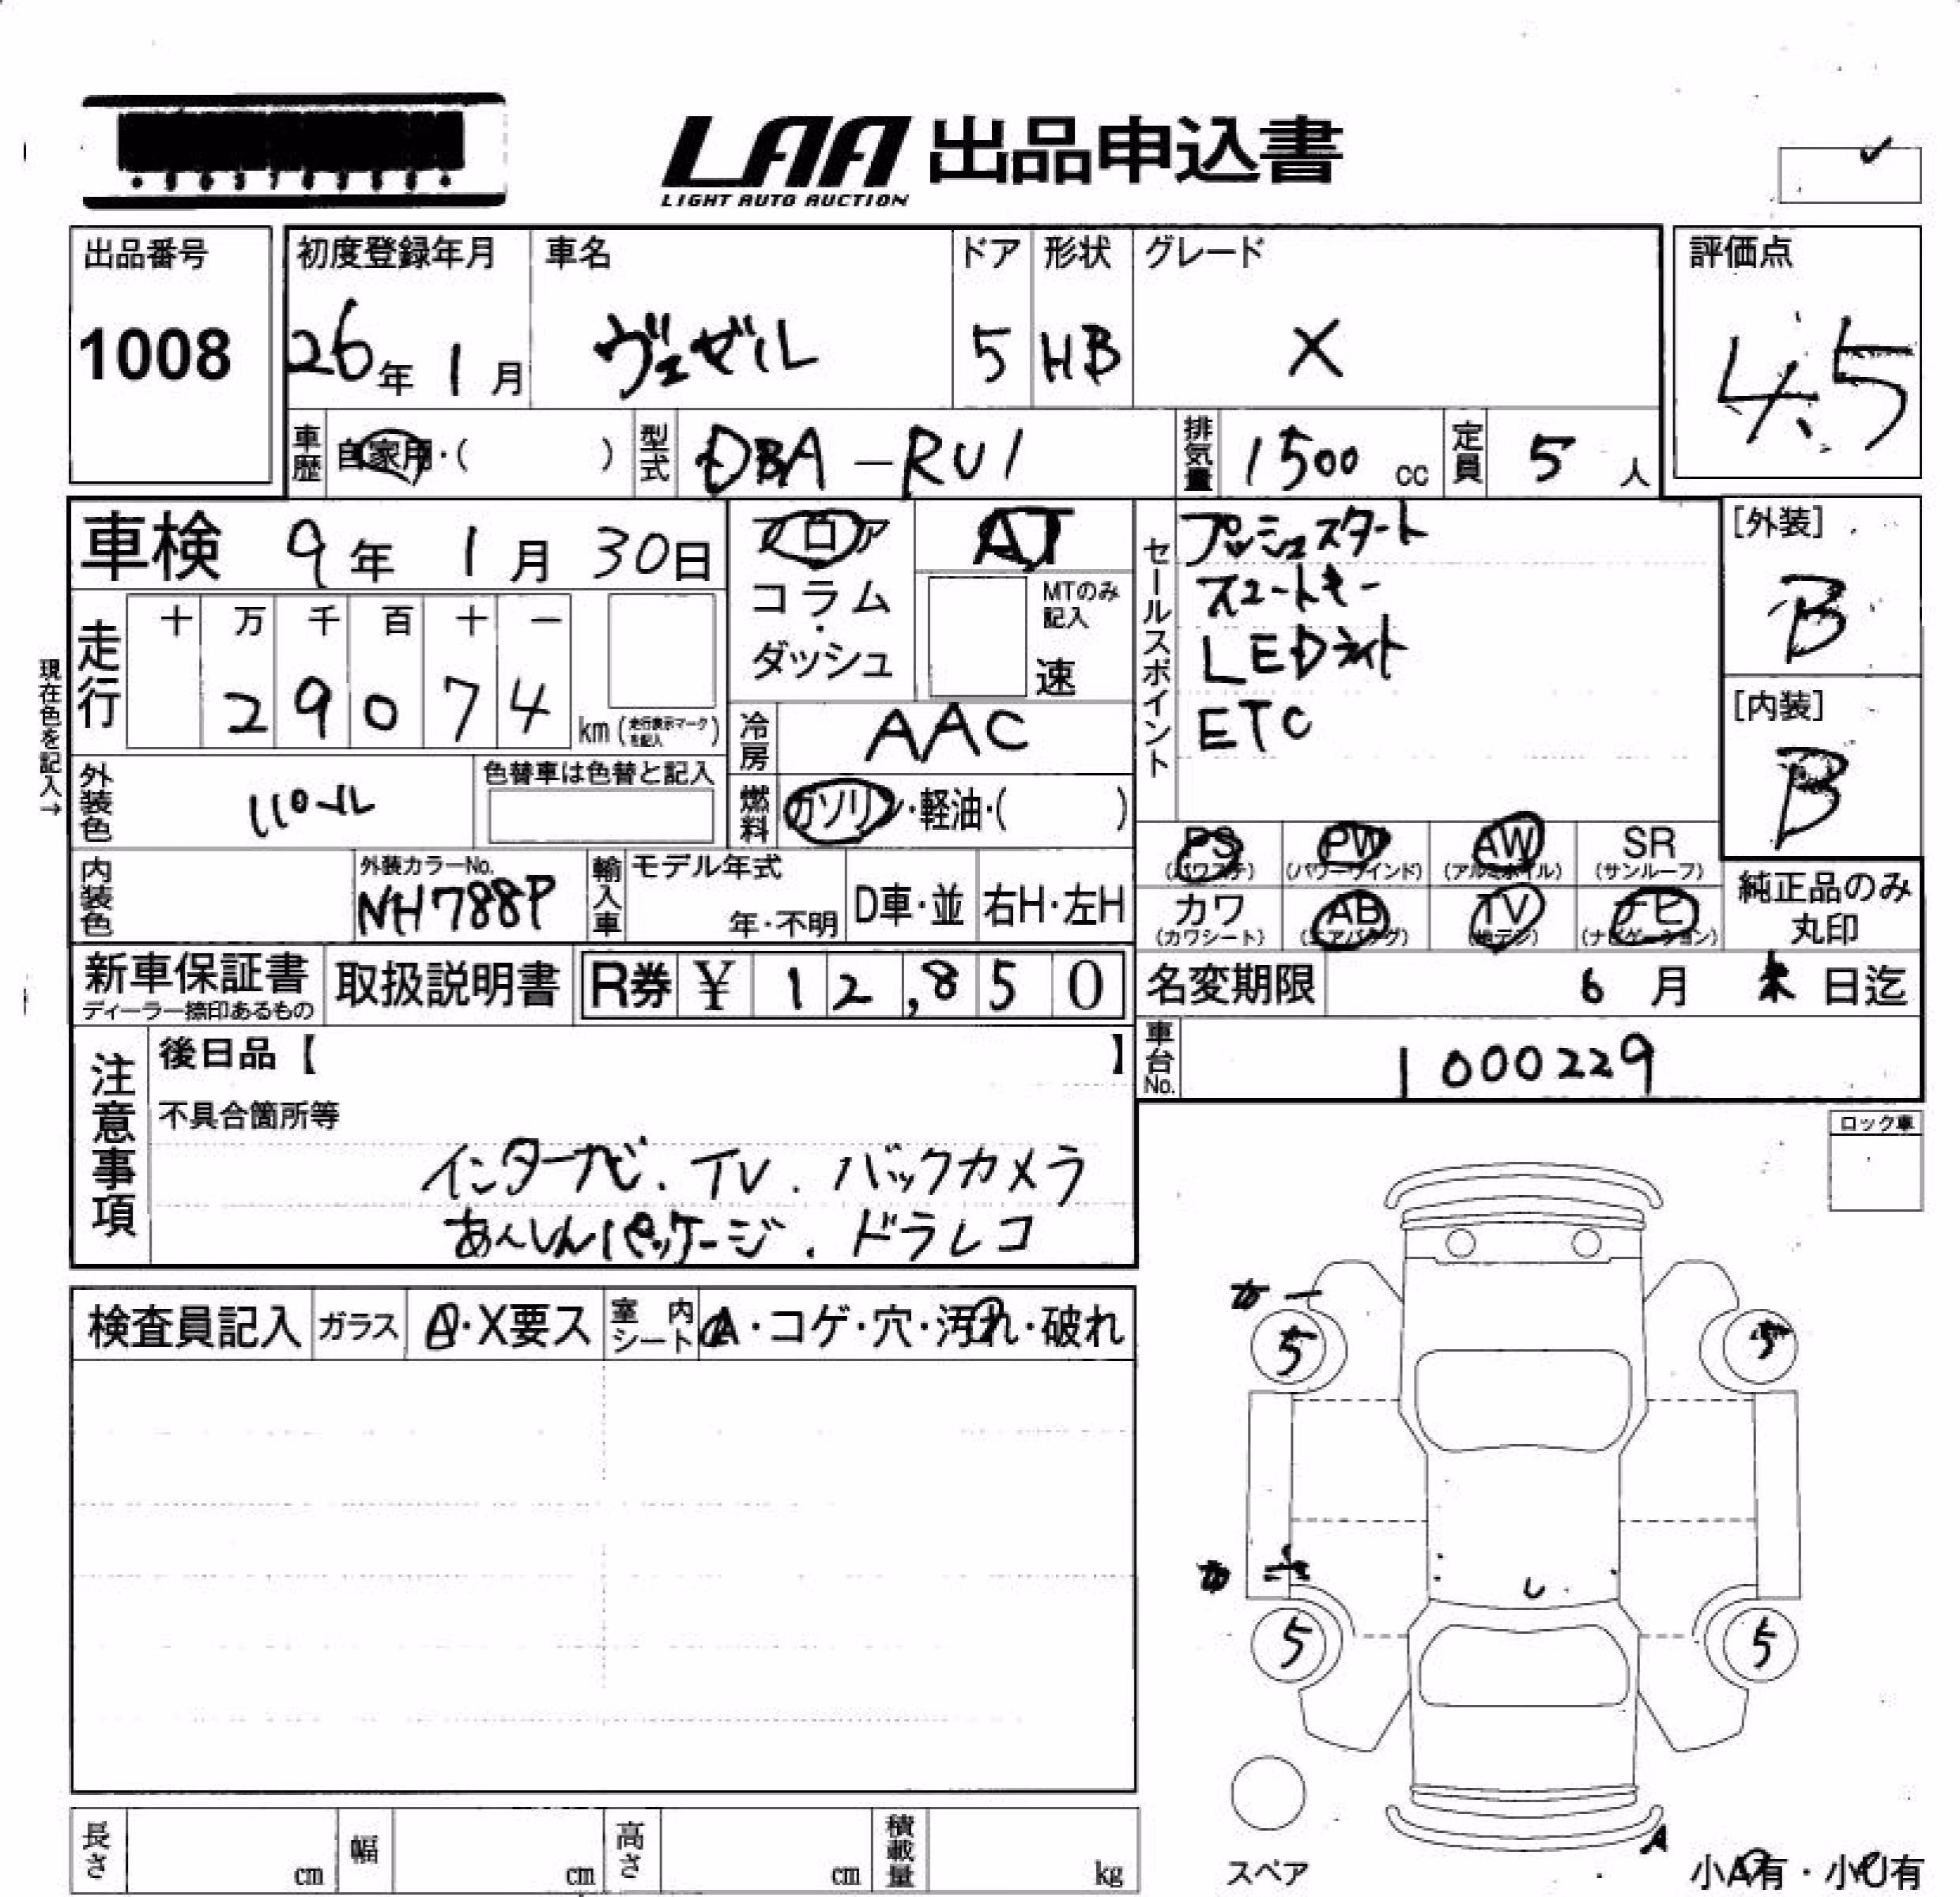 LAA 出品申込書
LIGHT AUTO AUCTION
出品番号
1008
初度登録年月
26年 1月
車名
ヴェゼル
ドア
5
形状
HB
グレード
X
評価点
4.5
車歴 自家用・( )
型式 DBA-RU1
排気量 1500 cc
定員 5 人
車検 9年 1月 30日
フロア
コラム・
ダッシュ
AT
MTのみ記入
速
走行
十 万 千 百 十 一
2 9 0 7 4
km (走行表示マークを記入)
現在色を記入→
冷房 AAC
燃料 ガソリン・軽油・( )
外装色 パール
色替車は色替と記入
内装色
外装カラーNo.
NH788P
輸入車
モデル年式
年・不明
D車・並
右H・左H
セールスポイント
プッシュスタート
スマートキー
LEDライト
ETC
[外装]
B
[内装]
B
PS
(パワステ)
PW
(パワーウインド)
AW
(アルミホイル)
SR
(サンルーフ)
カワ
(カワシート)
AB
(エアバック)
TV
(地デジ)
ナビ
(ナビゲーション)
純正品のみ
丸印
新車保証書
ディーラー捺印あるもの
取扱説明書
R券 ¥ 12,850
名変期限 6月 末日迄
車台No. 1000229
注意事項
後日品【 】
不具合箇所等
インターナビ.TV.バックカメラ
あんしんパッケージ.ドラレコ
ロック車
検査員記入
ガラス
A・X要ス
室内シート
A・コゲ・穴・汚れ・破れ
カ
5
5
カ
5
5
A
スペア
小A有・小U有
長さ cm
幅 cm
高さ cm
積載量 kg